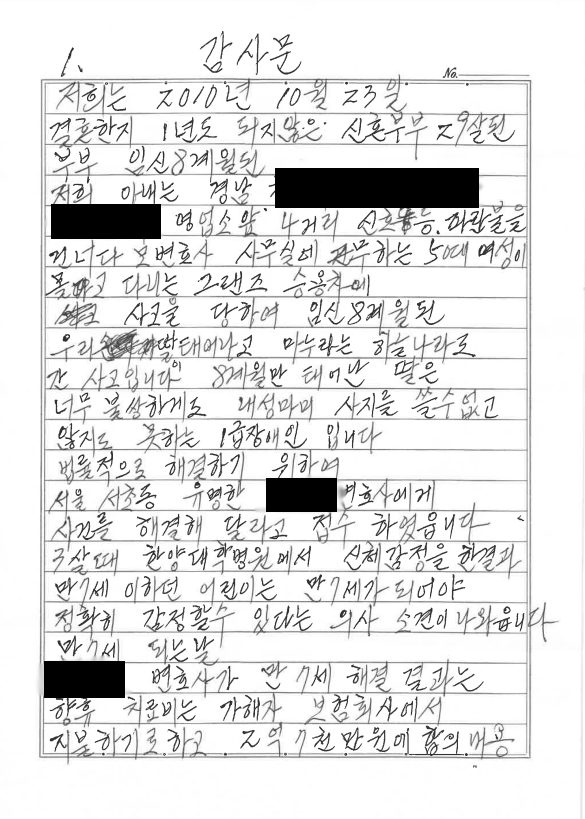 1. 감사문
No.
저희는 2010년 10월 23일
결혼한지 1년도 되지않은 신혼부부 29살된
부부 임신 8개월된
저희 아내는 경남
영업소앞 4거리 신호등. 파란불을
건너다 모변호사 사무실에 근무하는 50대 여성이
몰고 다니는 그랜즈 승용차에
사고을 당하여 임신8개월된
우리 딸태어나고 마누라는 하늘나라로
간 사고입니다 8개월만 태어난 딸은
너무 불쌍하게도 뇌성마비 사지를 쓸수없고
않지도 못하는 1급장애인 입니다
법률적으로 해결하기 위하여
서울 서초동 유명한 변호사에게
사건를 해결해 달라고 접수 하였읍니다
3살때 한양대학병원에서 신체감정을 한결과
만7세 이하던 어린이는 만7세가 되어야
정확히 감정할수 있다는 의사 소견이나와읍니다
만7세 되는날
변호사가 만 7세 해결 결과는
향휴 치료비는 가해자 보험회사에서
지불하기로하고 2억 7천만원에 합의 내용